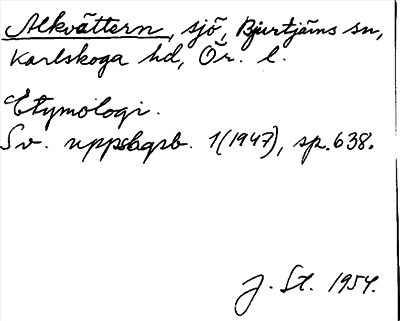 Alkvättern, sjö, Bjurtjäms sn,
Karlskoga hd, Ör. l.
Etymologi.
Sv. uppslagsb. 1(1947), sp. 638.
J. St. 1954.